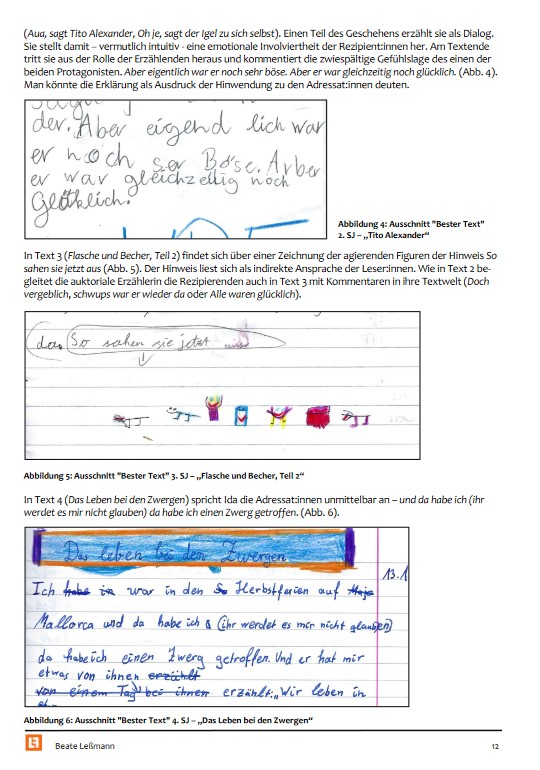 (Aua, sagt Tito Alexander, Oh je, sagt der Igel zu sich selbst). Einen Teil des Geschehens erzählt sie als Dialog.
Sie stellt damit – vermutlich intuitiv - eine emotionale Involviertheit der Rezipient:innen her. Am Textende
tritt sie aus der Rolle der Erzählenden heraus und kommentiert die zwiespältige Gefühlslage des einen der
beiden Protagonisten. Aber eigentlich war er noch sehr böse. Aber er war gleichzeitig noch glücklich. (Abb. 4).
Man könnte die Erklärung als Ausdruck der Hinwendung zu den Adressat:innen deuten.
der. Aber eigend lich war
er noch ser Böse. Arber
er war gleichzeitig noch
Glüklich.
Abbildung 4: Ausschnitt "Bester Text"
2. SJ – „Tito Alexander“
In Text 3 (Flasche und Becher, Teil 2) findet sich über einer Zeichnung der agierenden Figuren der Hinweis So
sahen sie jetzt aus (Abb. 5). Der Hinweis liest sich als indirekte Ansprache der Leser:innen. Wie in Text 2 be-
gleitet die auktoriale Erzählerin die Rezipierenden auch in Text 3 mit Kommentaren in ihre Textwelt (Doch
vergeblich, schwups war er wieder da oder Alle waren glücklich).
das So sahen sie jetzt aus
Abbildung 5: Ausschnitt "Bester Text" 3. SJ – „Flasche und Becher, Teil 2“
In Text 4 (Das Leben bei den Zwergen) spricht Ida die Adressat:innen unmittelbar an – und da habe ich (ihr
werdet es mir nicht glauben) da habe ich einen Zwerg getroffen. (Abb. 6).
Das leben bei den Zwergen
13.1
Ich habe in war in den So Herbstferien auf Maje
Mallorca und da habe ich (ihr werdet es mir nicht glauben)
da habe ich einen Zwerg getroffen. Und er hat mir
etwas von ihnen erzählt
von einem Tag bei ihnen erzählt: „Wir leben in
Abbildung 6: Ausschnitt "Bester Text" 4. SJ – „Das Leben bei den Zwergen“
Beate Leßmann
12